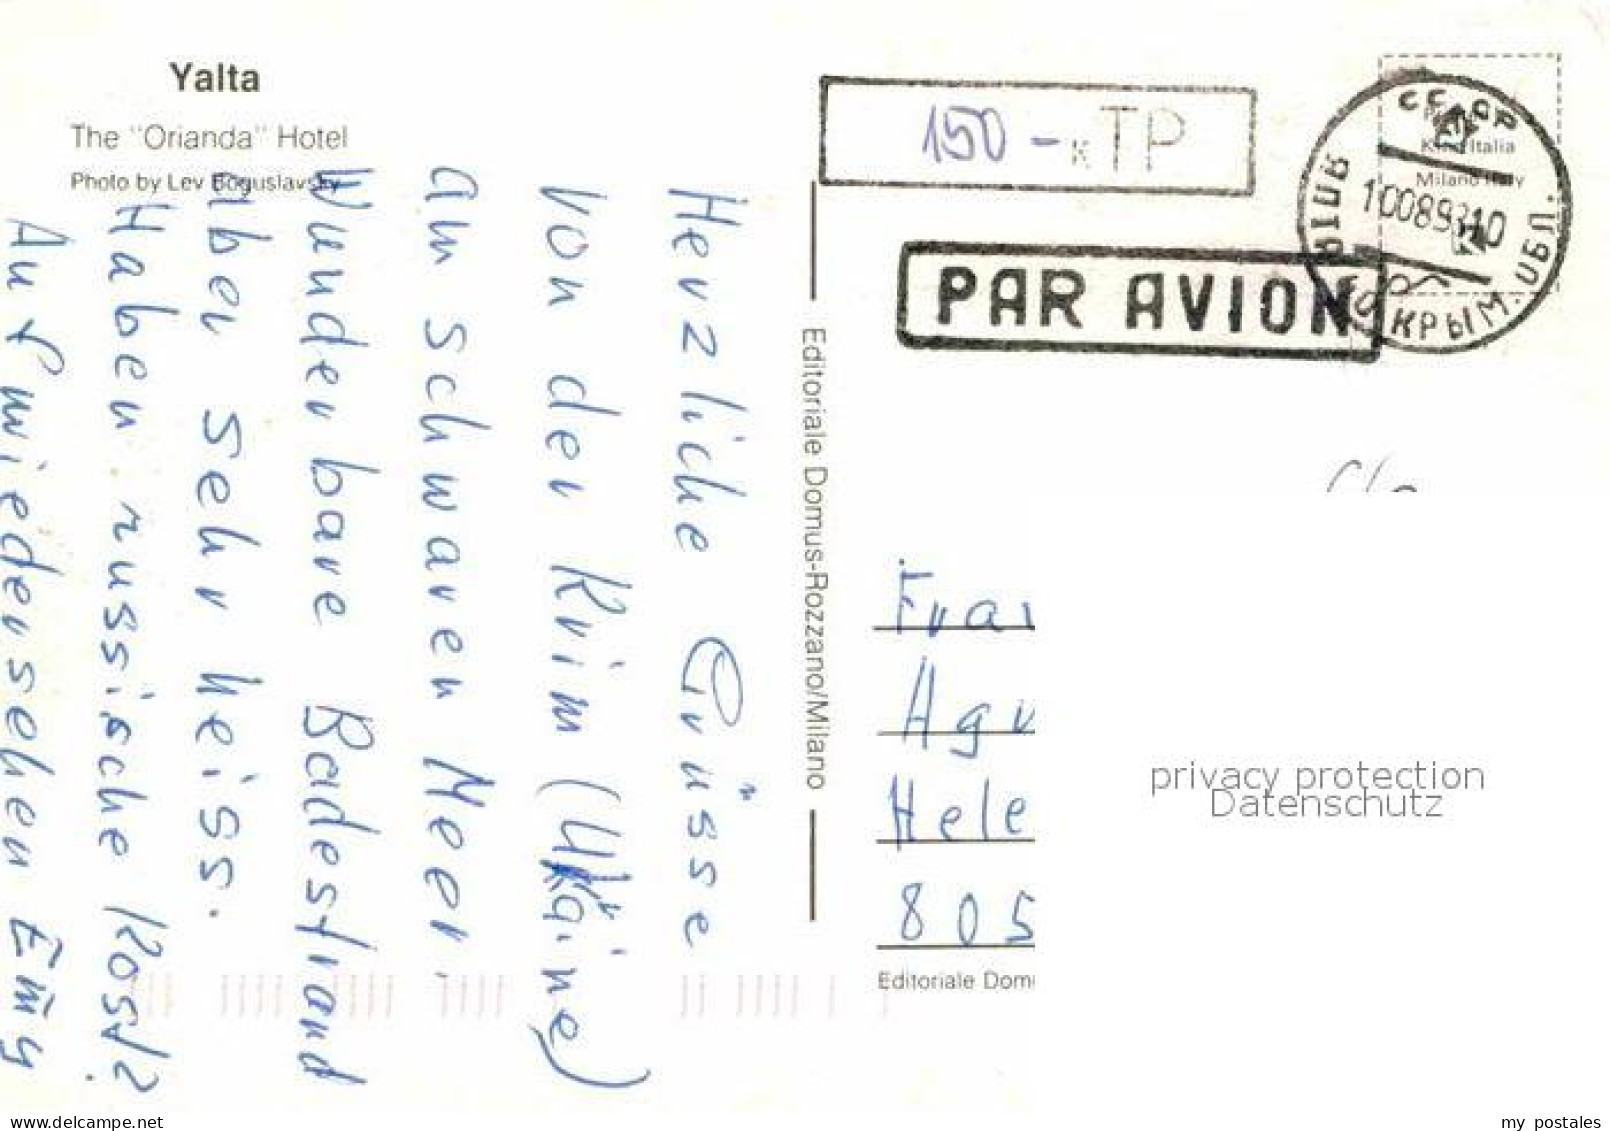 Yalta
The "Orianda" Hotel
Photo by Lev Boguslavsky
Herzliche Grüsse
von der Krim (Ukraine)
am schwaren Meer.
Wunderbare Badestrand
aber sehr heiss.
Haben russische Kost?
Auf wiedersehen Emy
Editoriale Domus-Rozzano/Milano
150 - к TP
PAR AVION
СССР
Kina Italia
Milano Italy
10089310
КРЫМ. ОБЛ.
Frau
Agu
Hele
805
Editoriale Dom
privacy protection
Datenschutz
my postales